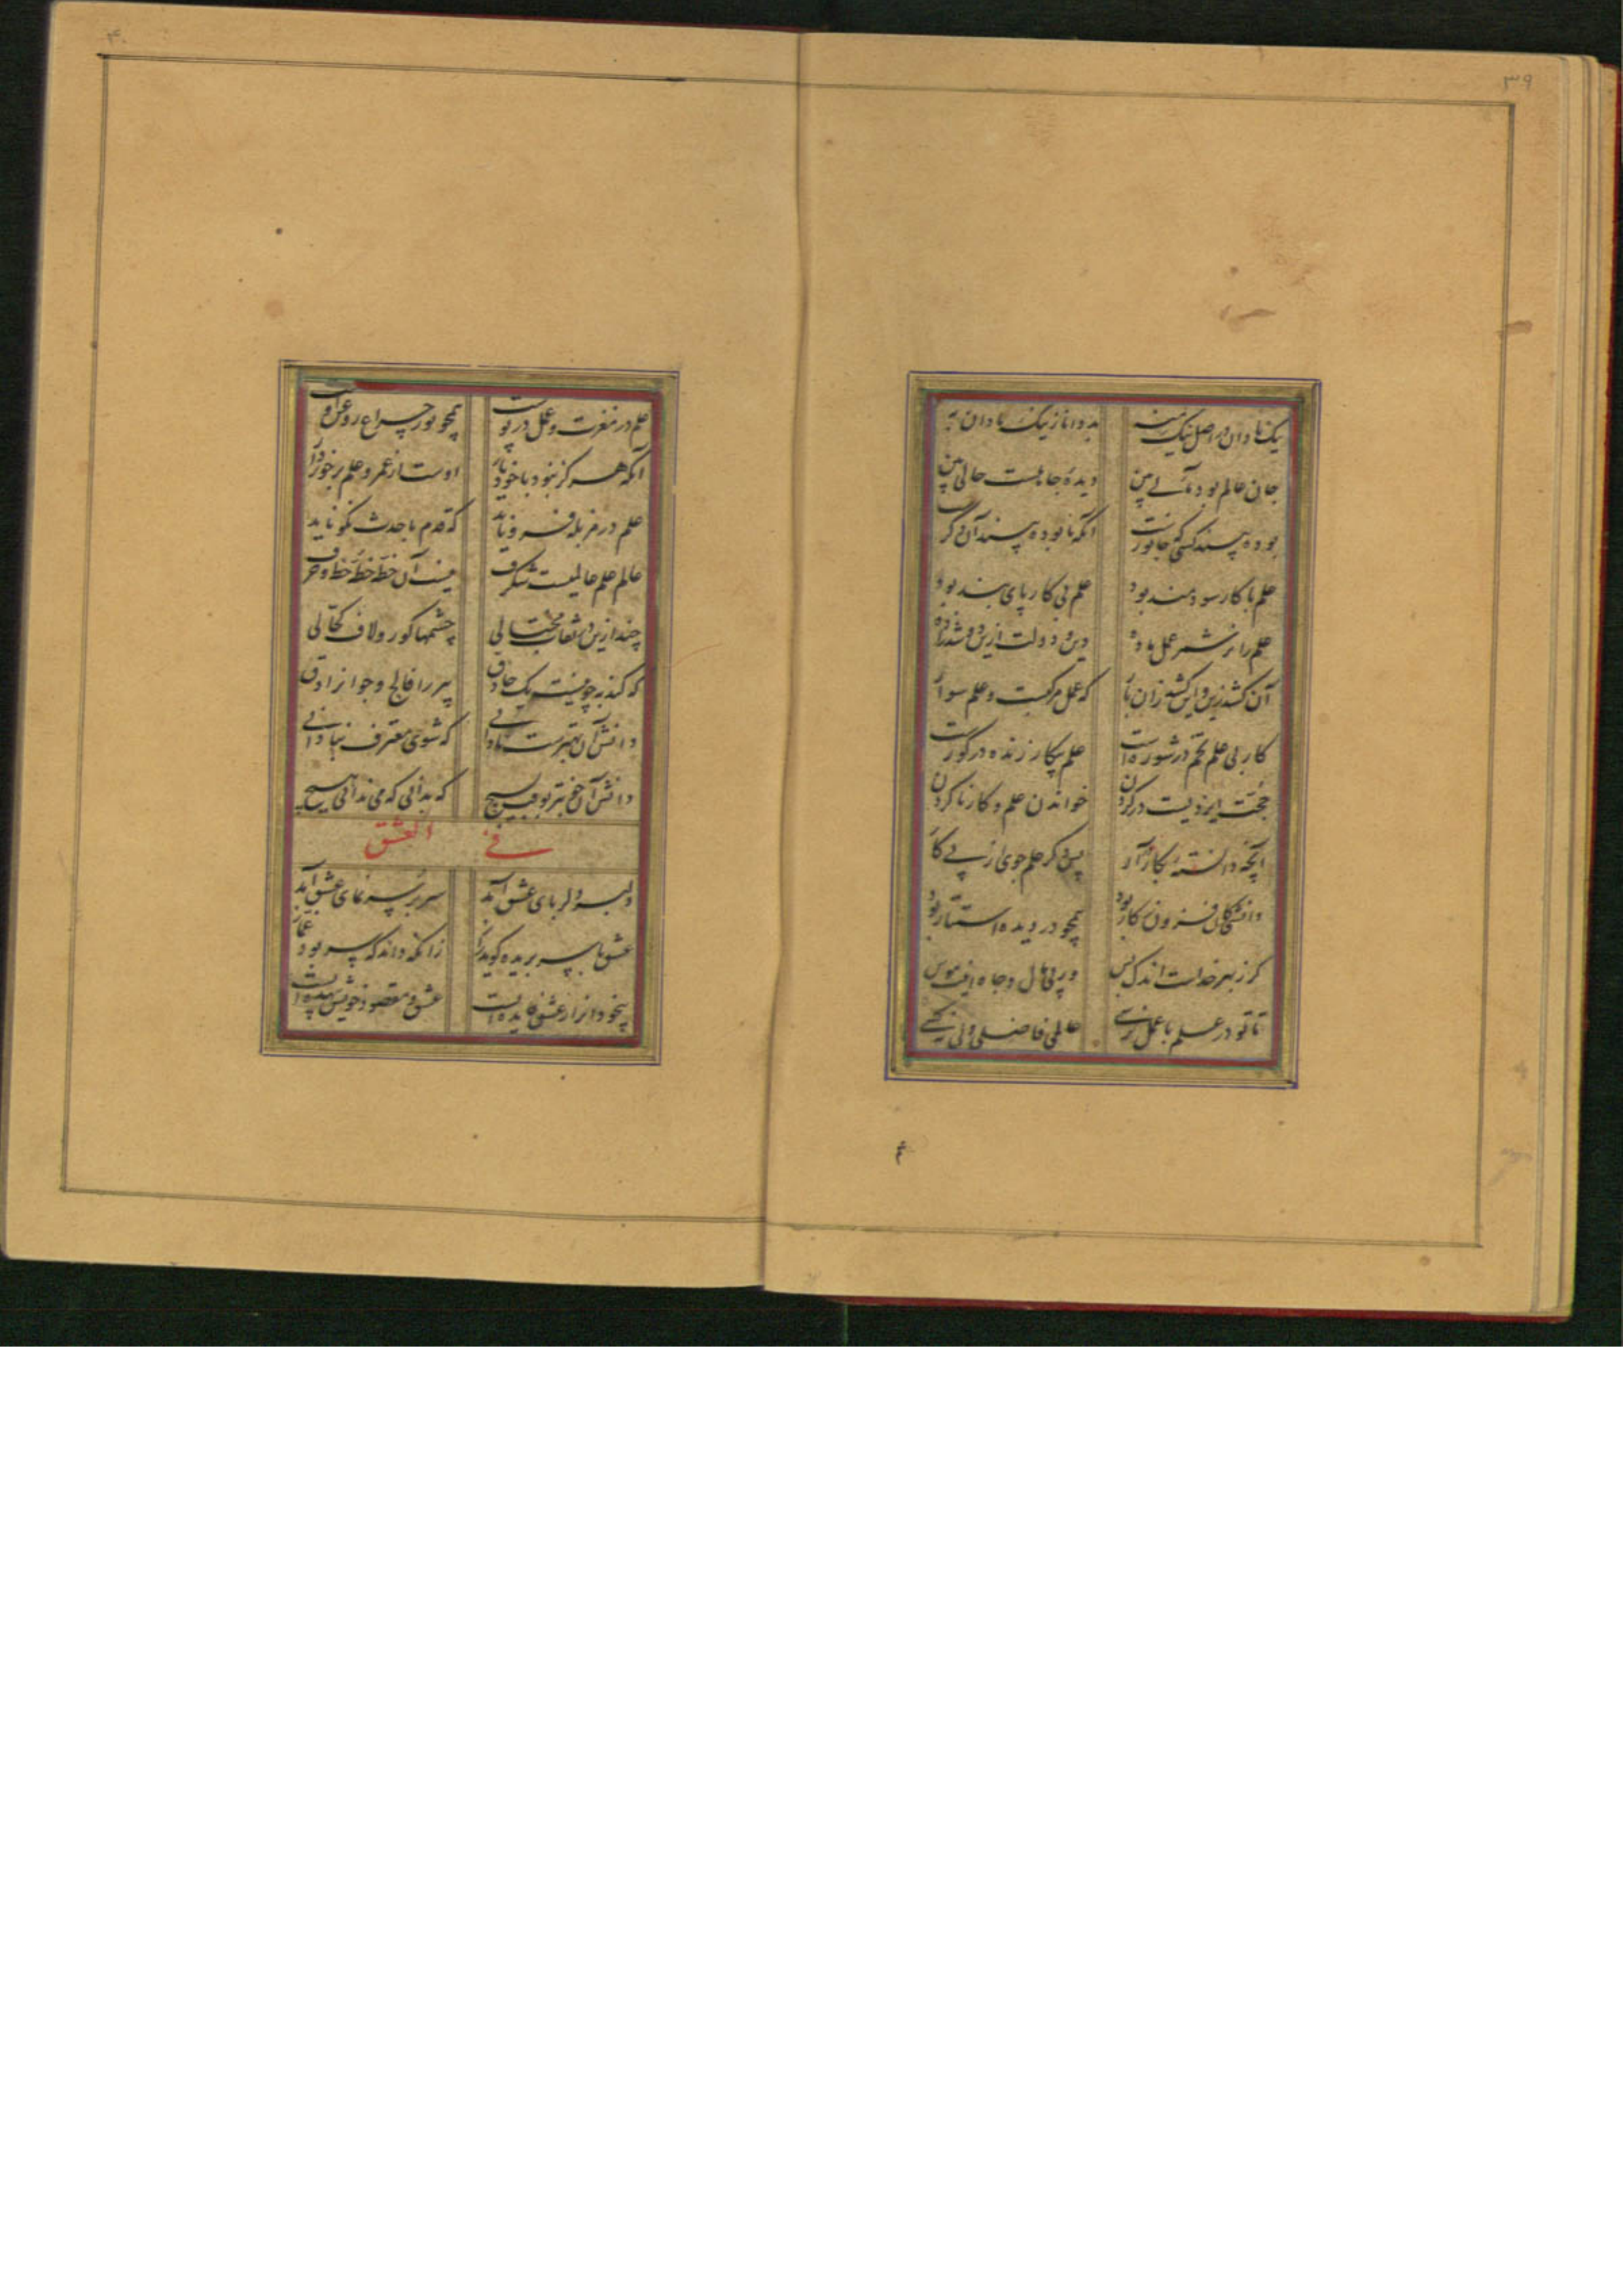 ۳۹
نیک نادان در اصل نیک نه به بد دانا ز نیک نادان به
جان عالم بود بین دیدهٔ جاهلست حالی بین
بوده بیسند کسی جانورست آنکه نابوده بیسند آن دگرست
علم با کار سودمند بود علم بی کار پای بند بود
علم را نر شمر عمل ماده دین و دولت ازین دو شد زاده
آن کشد زین و این کشد زان بار که عمل مرکبست و علم سوار
کار بی علم تخم در شوره است علم بیکار زنده در گورست
حجت ایزدیست در گردن خواندن علم و کار ناکردن
آنچه دانسته بکار در آر پس دگر علم جوی از پی کار
دانش کان فزون ز کار بود همچو در دیده استتار بود
گر ز بهر خداست اندک بس ور پی مال و جاه اینت هوس
تا تو در علم با عمل نرسی عالمی فاضلی ولی نه کسی
۴۰
علم در مغزت و عمل در پوست همچو نور چراغ و روغن اوست
آنکه هرگز نبود با خود یار اوست از عمر و علم برخوردار
علم در مزبله فرو ناید که قدم با حدث نکو ناید
عالم علم عالمیست شگرف نیست آن خطه خطهٔ خط و حرف
چند ازین در نقاب محتالی چشمها کور و لاف کحالی
که کند به چو نیست یک حاذق پیر را فالج و جوانرا دق
دانش آن بهترست نادانی که شوی معترف بنادانی
دانش آن خوبتر ز بهر بسیج که بدانی که می ندانی هیچ
فی العشق
دلبر دلربای عشق آمد سربر سرنمای عشق آمد
عشق با سر بریده گوید راز زانکه داند که سر بود غماز
بیخود انرا ز عشق فایده است عشق و مقصود خویش بیهده است